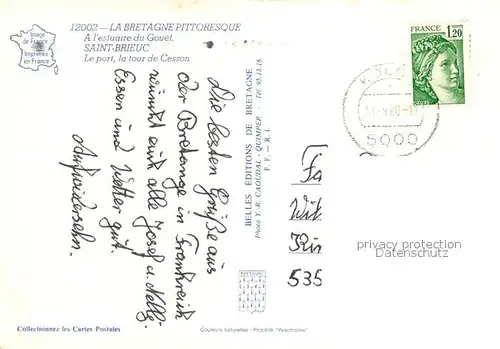 12002 — LA BRETAGNE PITTORESQUE
A l'estuaire du Gouet.
SAINT-BRIEUC
Le port, la tour de Cesson
Image de France
Imprimée en France
Die besten Grüße aus
der Bretange in Frankreich
wünscht euch alle Josef u. Nelly.
Essen und Wetter gut.
Aufwidersehn.
BELLES ÉDITIONS DE BRETAGNE
Photo Y.-R. CAOUDAL - QUIMPER - Tél. 95.13.16
F. F. - R. I.
FRANCE
1,20
5000
Fa
Wit
Rin
535
privacy protection
Datenschutz
BRETAGNE
Collectionnez les Cartes Postales
Couleurs naturelles - Procédé "Yvachrome"